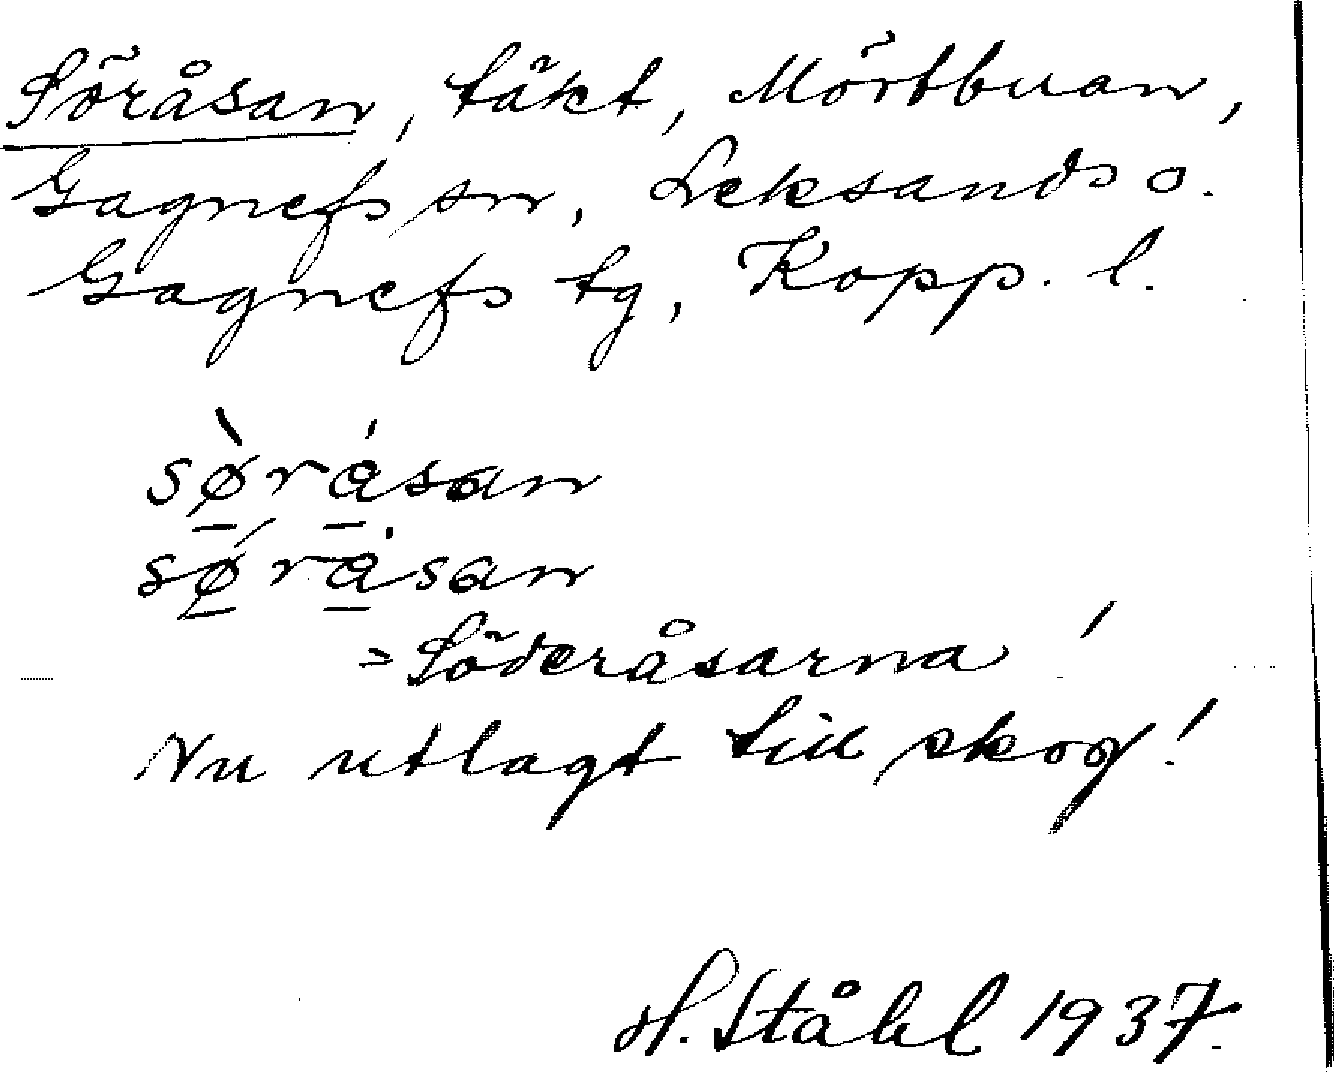 Söråsan, täkt, Mörtbuan,
Gagnefs sn, Leksands o.
Gagnefs tg, Kopp. l.
sø̀rásan
sǿråsan
= Söderåsarna!
Nu utlagt till skog!
H. Ståhl 1937.